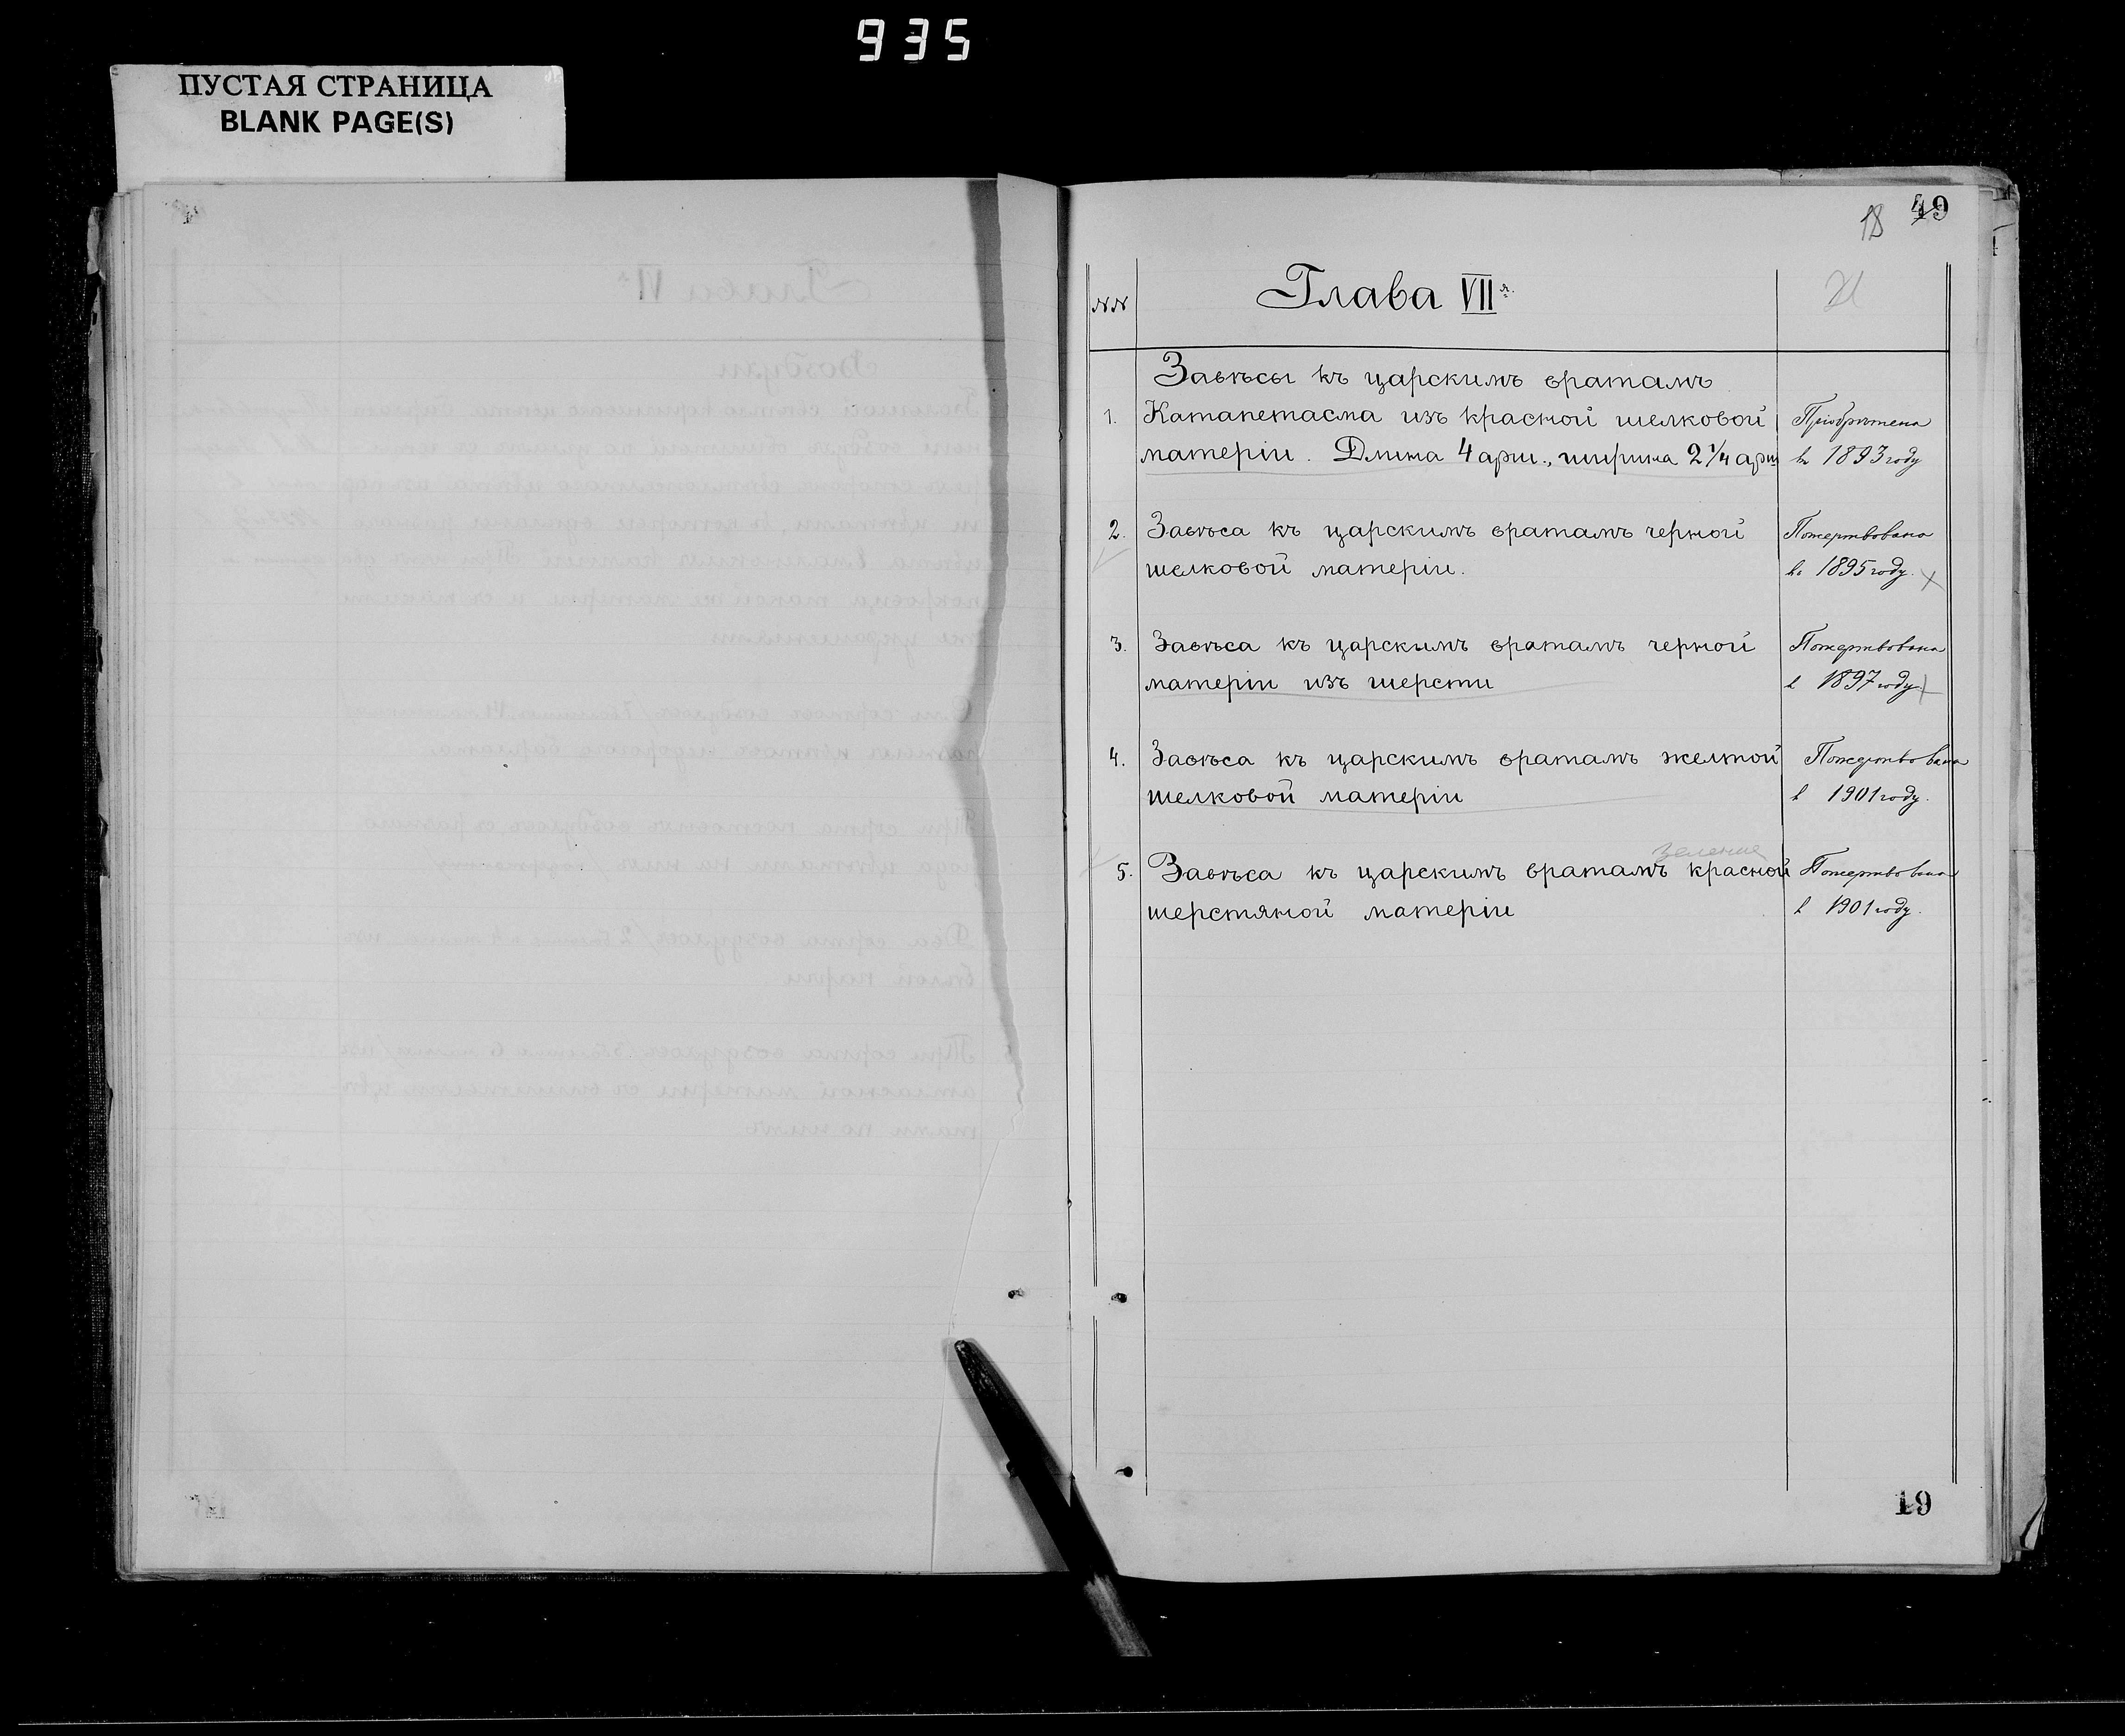 935
ПУСТАЯ СТРАНИЦА
BLANK PAGE(S)
18 49
21
NN Глава VII я.
Завѣсы къ царскимъ вратамъ
1. Катапетасма изъ красной шелковой Пріобрѣтена
матеріи. Длина 4 арш., ширина 2 1/4 арш въ 1893 году
2. Завѣса къ царскимъ вратамъ черной Пожертвована
шелковой матеріи. въ 1895 году. х
3. Завѣса къ царскимъ вратамъ черной Пожертвована
матеріи изъ шерсти в 1897 году
4. Завѣса къ царскимъ вратамъ желтой Пожертвована
шелковой матеріи в 1901 году.
зеленые
5. Завѣса къ царскимъ вратамъ красной Пожертвована
шерстяной матеріи в 1901 году.
19